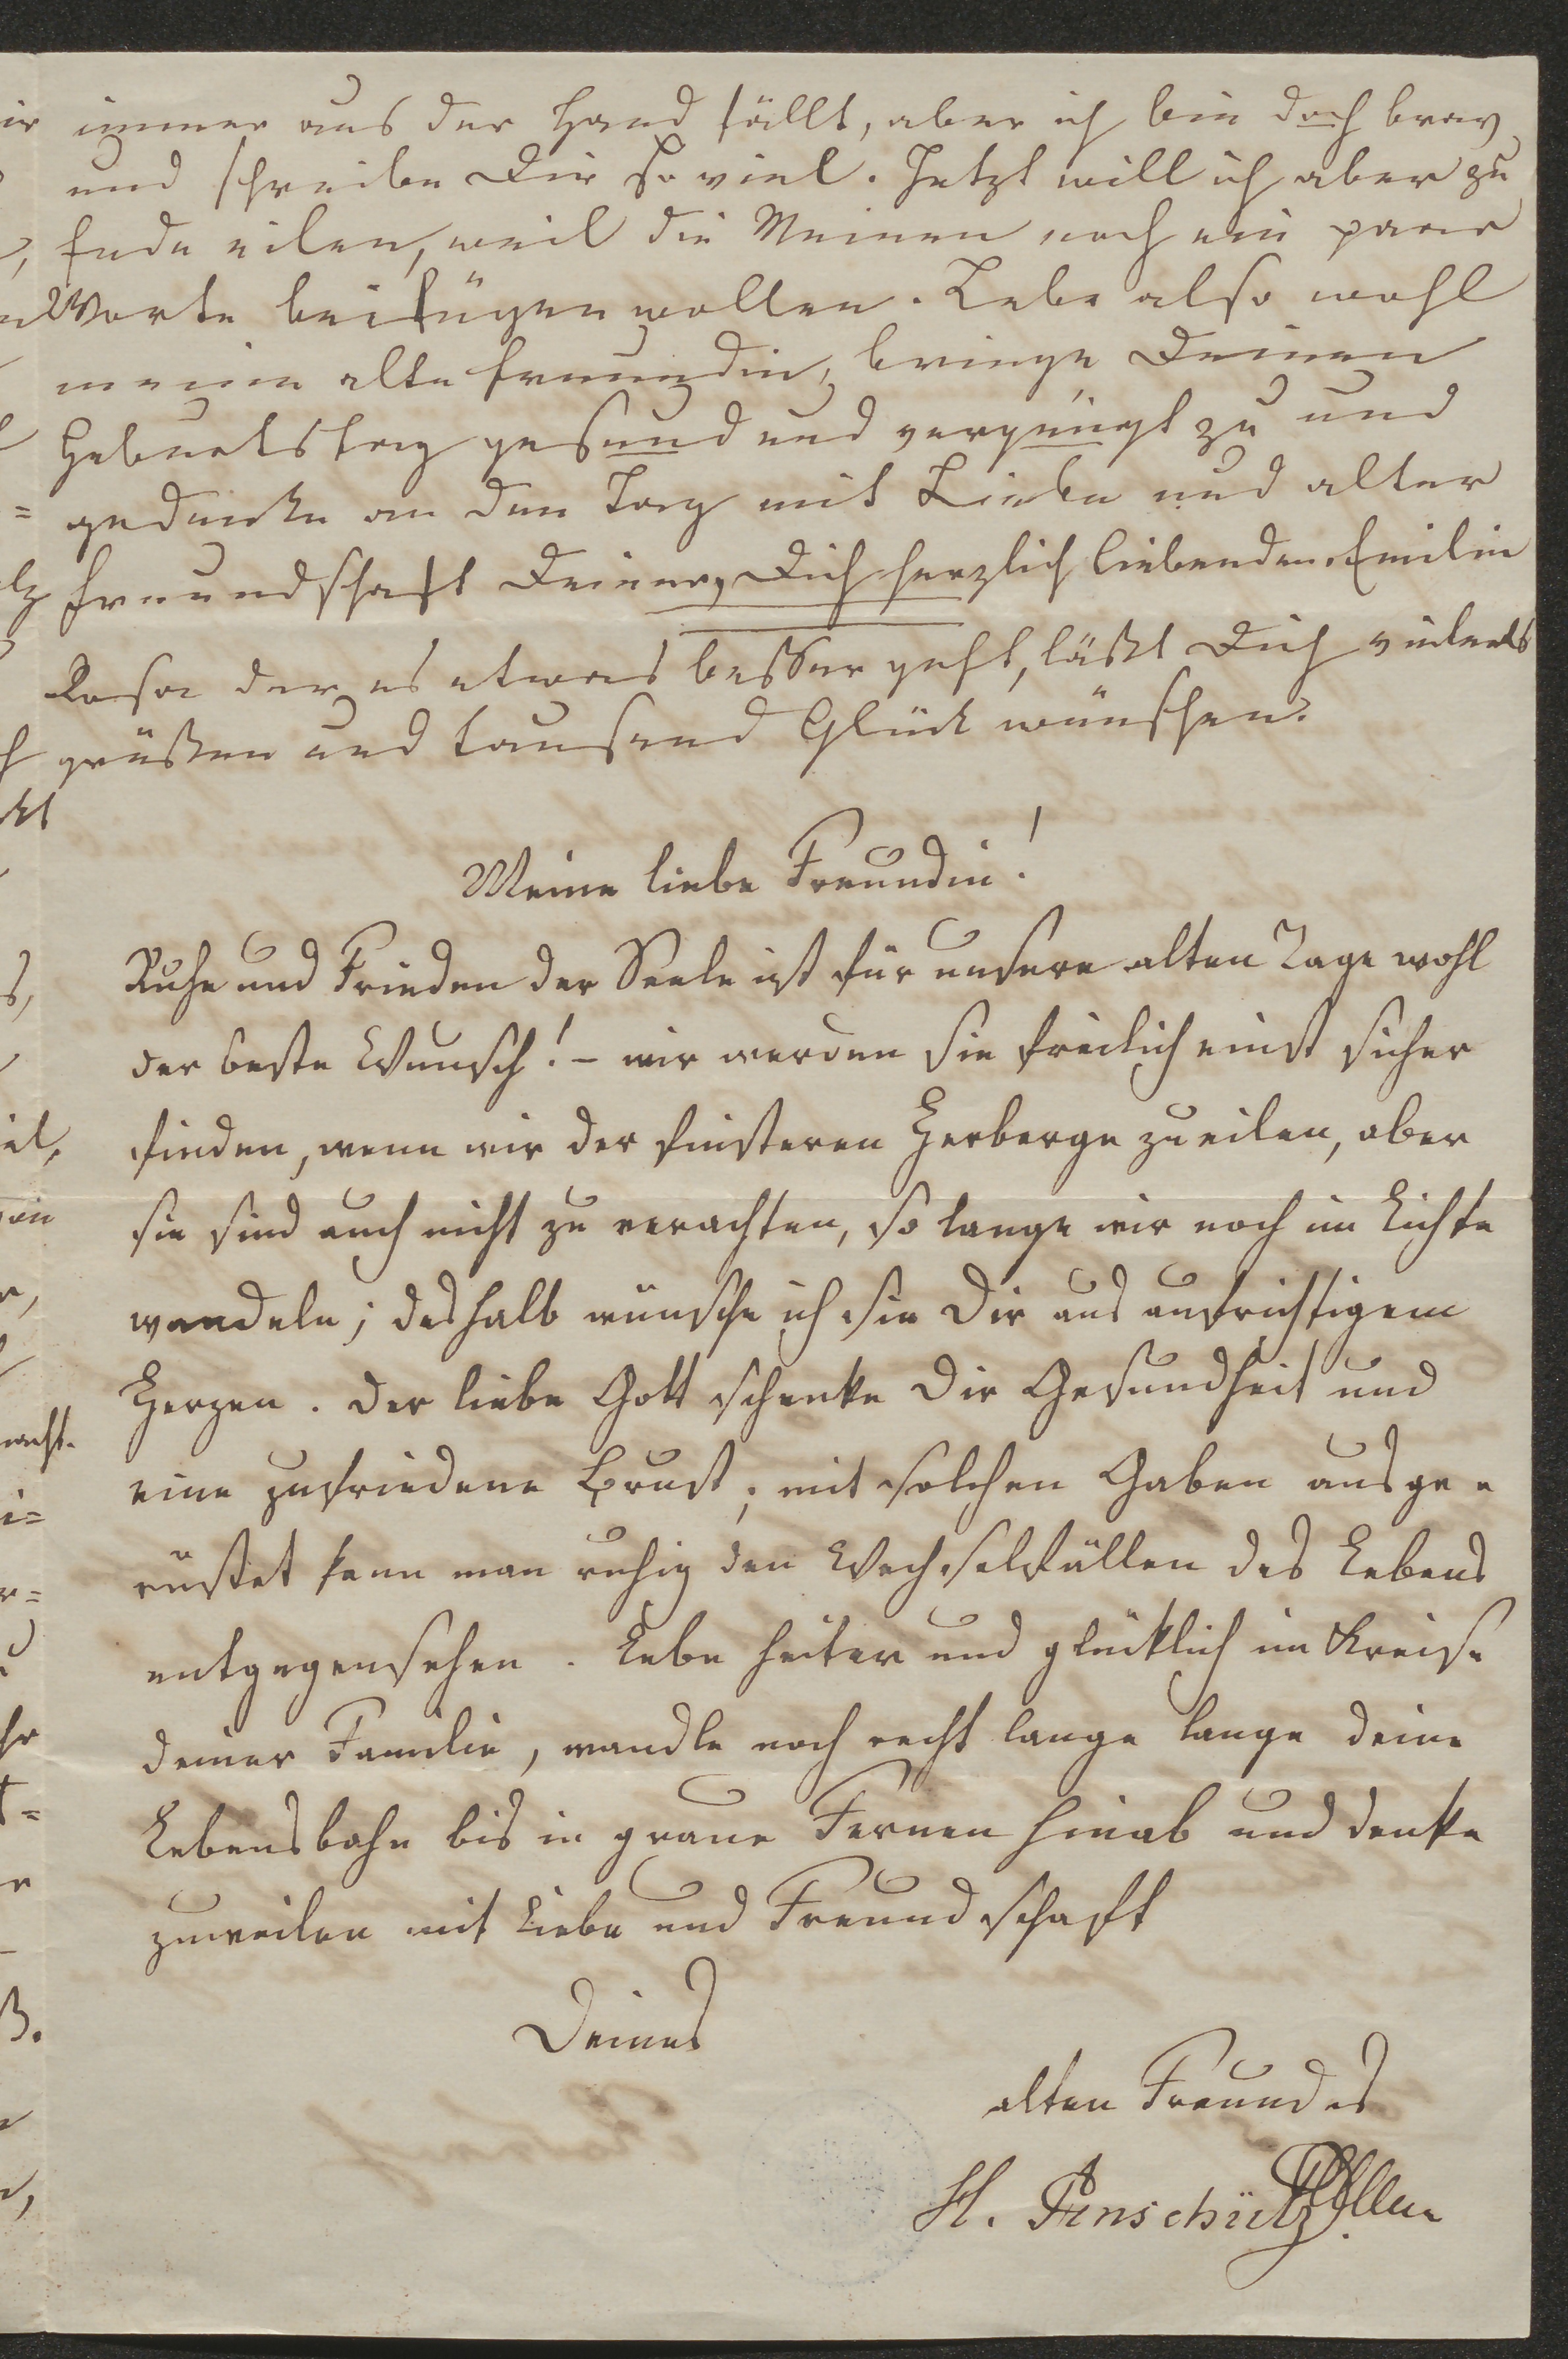 immer aus der Hand fällt, aber ich bin doch brav
und schreibe Dir so viel. Jetzt will ich aber zu
Ende eilen, weil die Meinen noch ein paar
Worte beifügen wollen. Lebe also wohl
meine alte Freundin, bringe Deinen
Geburtstag gesund und vergnügt zu und
gedenke an den Tag mit Liebe und alter
Freundschaft Deiner, Dich herzlich liebenden Emilie
Rosa der es etwas besser geht, läßt Dich vielmals
grüßen und tausend Glück wünschen.
Meine liebe Freundin!
Ruhe und Frieden der Seele ist für unsere alten Tage wohl
der beste Wunsch! – wir werden sie freilich einst sicher
finden, wenn wir der finsteren Herberge zueilen, aber
sie sind auch nicht zu verachten, so lange wir noch im Lichte
wandeln; deshalb wünsche ich sie Dir aus aufrichtigem
Herzen. Der liebe Gott schenke Dir Gesundheit und
eine zufriedene Brust; mit solchen Gaben ausge-
rüstet kann man ruhig den Wechselfällen des Lebens
entgegensehen. Lebe heiter und glücklich im Kreise
deiner Familie, wandle noch recht lange lange deine
Lebensbahn bis in graue Fernen hinab und denke
zuweilen mit Liebe und Freundschaft
Deines
alten Freundes
H.